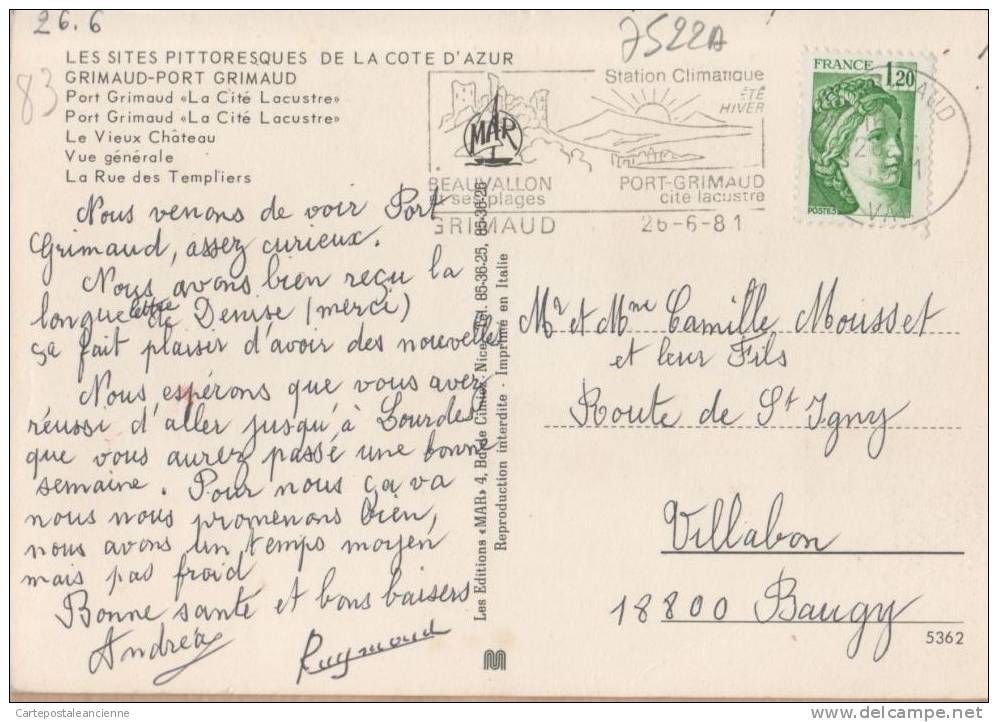 26.6
7522A
83
LES SITES PITTORESQUES DE LA COTE D'AZUR
GRIMAUD-PORT GRIMAUD
Port Grimaud «La Cité Lacustre»
Port Grimaud «La Cité Lacustre»
Le Vieux Château
Vue générale
La Rue des Templiers
Station Climatique
ÉTÉ
HIVER
MAR
BEAUVALLON
et ses plages
PORT-GRIMAUD
cité lacustre
GRIMAUD 26-6-81
FRANCE 1,20
POSTES
VAR
Nous venons de voir Port
Grimaud, assez curieux.
Nous avons bien reçu la
longue lettre de Denise (merci)
ça fait plaisir d'avoir des nouvelles
Nous espérons que vous avez
réussi d'aller jusqu'à Lourdes
que vous aurez passé une bonne
semaine. Pour nous ça va
nous nous promenons bien,
nous avons un temps moyen
mais pas froid
Bonne santé et bons baisers
Andréa
Raymond
Les Editions «MAR» 4, Bd de Cimiez, Nice Tel. 85-36-25, 85-36-26
Reproduction interdite - Imprimé en Italie
Mr et Mme Camille Mousset
et leur Fils
Route de St Igny
Villabon
18800 Baugy
5362
Cartepostaleancienne
www.delcampe.net